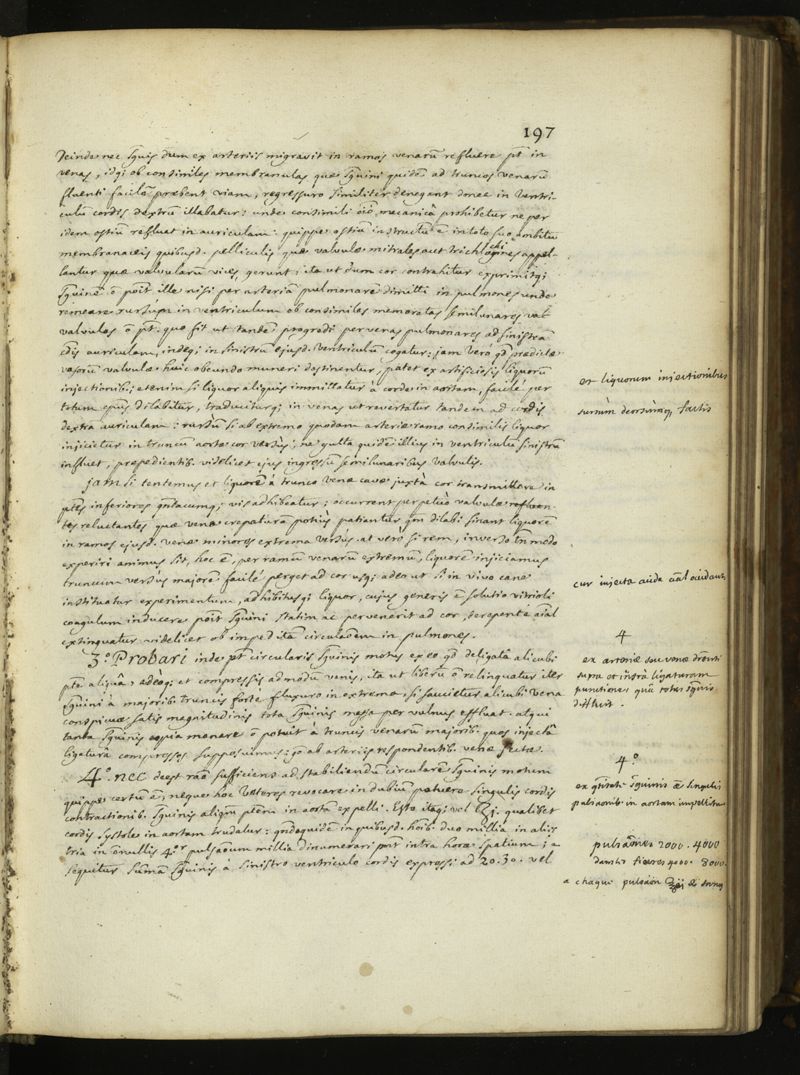 197
Deinde nec sguis dum ex arteriis migravit in ramos venarũ refluere pt in
venas, idq; ob consimiles membranulas quæ sguini quidẽ ad truncos venarũ
fluenti facilẽ præbent viam, regressuro similiter denegant donec in ventri-
culũ cordis dextrũ illabatur: unde consimili oĩo mecanicâ prohibetur ne per
idem ostiũ refluat in auriculam: quippe ostiũ instructũ ẽ in toto suo ambitu
membranaceis quibusd. pelliculis quæ valvulæ mitrales aut trichlochines appel-
lantur quæ valvularũ vices gerunt; ita ut dum cor contrahitur exprimitq;
sguinẽ õ possit ille nisi per arteriã pulmonarẽ dimitti in pulmones unde
remeare rursùm in ventriculum ob consimiles memoratas semilunares
valvulas õ pt. quo fit ut tandẽ progredi per venas pulmonares ad sinistrã
cdis auriculam, indeq; in sinistrũ ejusd. ventriculũ cogatur: jam verò qd prædictæ
vasorũ valvulæ huic obeundo muneri destinentur, patet ex artificiosis liquorũ
injectionib; etenim si liquor aliquis immittatur à corde in aortam, facilè per
totum corpus dilabitur, traduciturq; in venas ut revertatur tandem ad cordis
dextrã auriculam: rursũ si ab extremo quodam arteriæ ramo consimilis liquor
injicietur in truncũ aortæ cor versùs; ne gutta quidẽ illius in ventriculũ sinistrũ
influet, præpedientib. videlicet ejus ingressũ semilunaribus valvulis.
jam si tentemus et liquorẽ à trunco venæ cavæ juxtà cor transmittere in
ptes inferiores qntacumq; vis adhibeatur; occurrent perpetuò valvulæ
reluctantes quæ venæ crepaturã potiùs patiantur qm dilabi sinant liquorẽ
in ramos ejusd. venæ minores extrema versùs. at verò si rem, inverso tn modo
experiri animus sit, hoc ẽ, per ramũ venarũ extremũ, liquorẽ injiciamus
truncum versùs majorẽ facilè perget ad cor usq; adeo ut si in vivo cane
instituatur experimentum, adhibitusq; liquor, cujus generis ẽ solutio vitrioli
coagulum inducere possit sguini statim ac pervenerit ad cor, derepente aĩal
extinguatur videlicet ob impeditã circulaõem in pulmones.
3.º Probari inde pt circularis sguinis motus ex eo qd deligatâ alicubi
pte aliquâ, adeoq; et compressis admodũ venis, ita ut liberũ õ relinquatur iter
sguini à majorib; truncis fortè fluxuro in extrema, si saucietur alicubi vena
conspicuæ satis magnitudinis tota sguinis massa per vulnus effluat. atqui
tanta sguinis copia manare õ potuit à truncis venarũ majorib. quos injectâ
ligaturâ compressos supposuimus: go ab arteriis respondentib. venæ sectæ.
4.º nec deest raõ sufficiens ad stabiliendũ circularẽ sguinis motum
quippe certũ ẽ, neque hoc veteres revocare in dubiũ potuere singulis cordis
contractionib. sguinis aliqm ptem in aortã expelli. Esto itaq; vel ʒj. qualibet
cordis systole in aortam trudatur: qndoquidẽ in quibusd. hoib. duo millia in aliis
tria in õnullis 4or pulsaõum millia dinumerari pnt intra horæ spatium; a
sequitur summã sguinis à sinistro ventriculo cordis expressi ad 20. 30. vel
et liquorum injectionibus
sursùm deorsùmq; factis
cur injecta acida aal occidant
4
ex arteriæ suæ venæ
supra et infrà ligaturam
punctione; quũ totus sguis
diffluit.
4.º
ex qtitate sguinis
pulsaõnib in aortam impellitur
pulsaões 2000. 4000
dan les fievres 4000. 8000.
a chaque pulsaõn ʒij